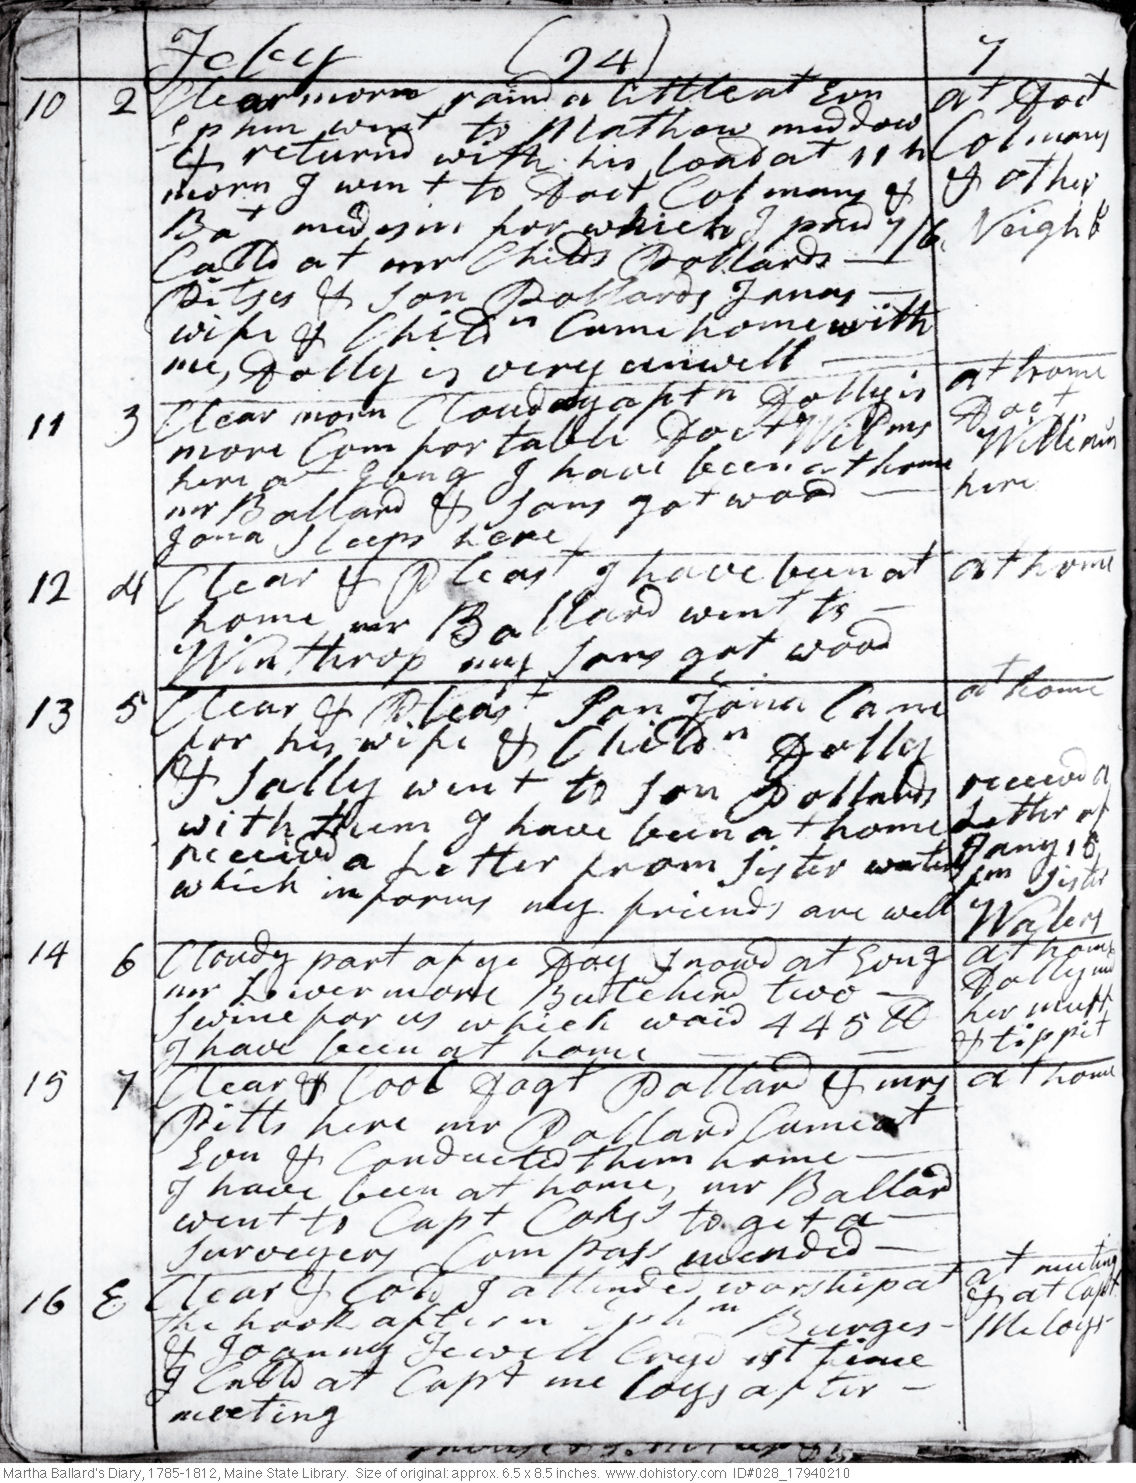 Feby (94) 7
10 2 Clear morn, raind a little at Evn
Ephm went to Mathew meddow
& returnd with his load at 11 h
morn I went to Doct Colmans &
Bot medisin for which I paid 7/6.
Calld at mr Childs Pollards —
Pitses & son Pollards, Jonas —
wife & Childn Came home with
me, Dolly is very unwell —
at Doct
Colmans
& other
Neighb
11 3 Clear morn Clouday aptn Dolly is
more Comfortable Doct Wilms
here at Evng I have been at home
mr Ballard & sons got wood —
Jona sleeps here
at home
Doct
Williams
here
12 4 Clear & Pleast I have been at
home mr Ballard went to —
Winthrop my sons got wood
at home
13 5 Clear & Pleast Son Jona Came
for his wife & Childn Dolly
& Sally went to son Pollards
with them I have been at home
received a Letter from Sister waters
which informs my friends are well
at home
received a
Letter of
Jany 15
fm Sister
Waters
14 6 Cloudy part of ye Day Snowd at Evng
mr Livermore Butcherd two —
swine for us which waid 445 lb
I have been at home —
at home
Dolly
her muff
& tippit
15 7 Clear & Cool Dagt Pollard & mrs
Pitts here mr Pollard Came at
Evn & Conducted them home —
I have been at home, mr Ballard
went to Capt Coks to get a —
surveyers Compass mended —
at home
16 E Clear & Cold I attended worship at
the hook aftern Burges —
& Joanna Jewell Cryd 1st time
I Calld at Capt meloys after —
meeting
at meeting
& at Capt
Meloys
Martha Ballard's Diary, 1785-1812, Maine State Library. Size of original: approx. 6.5 x 8.5 inches. www.dohistory.com ID#028_17940210